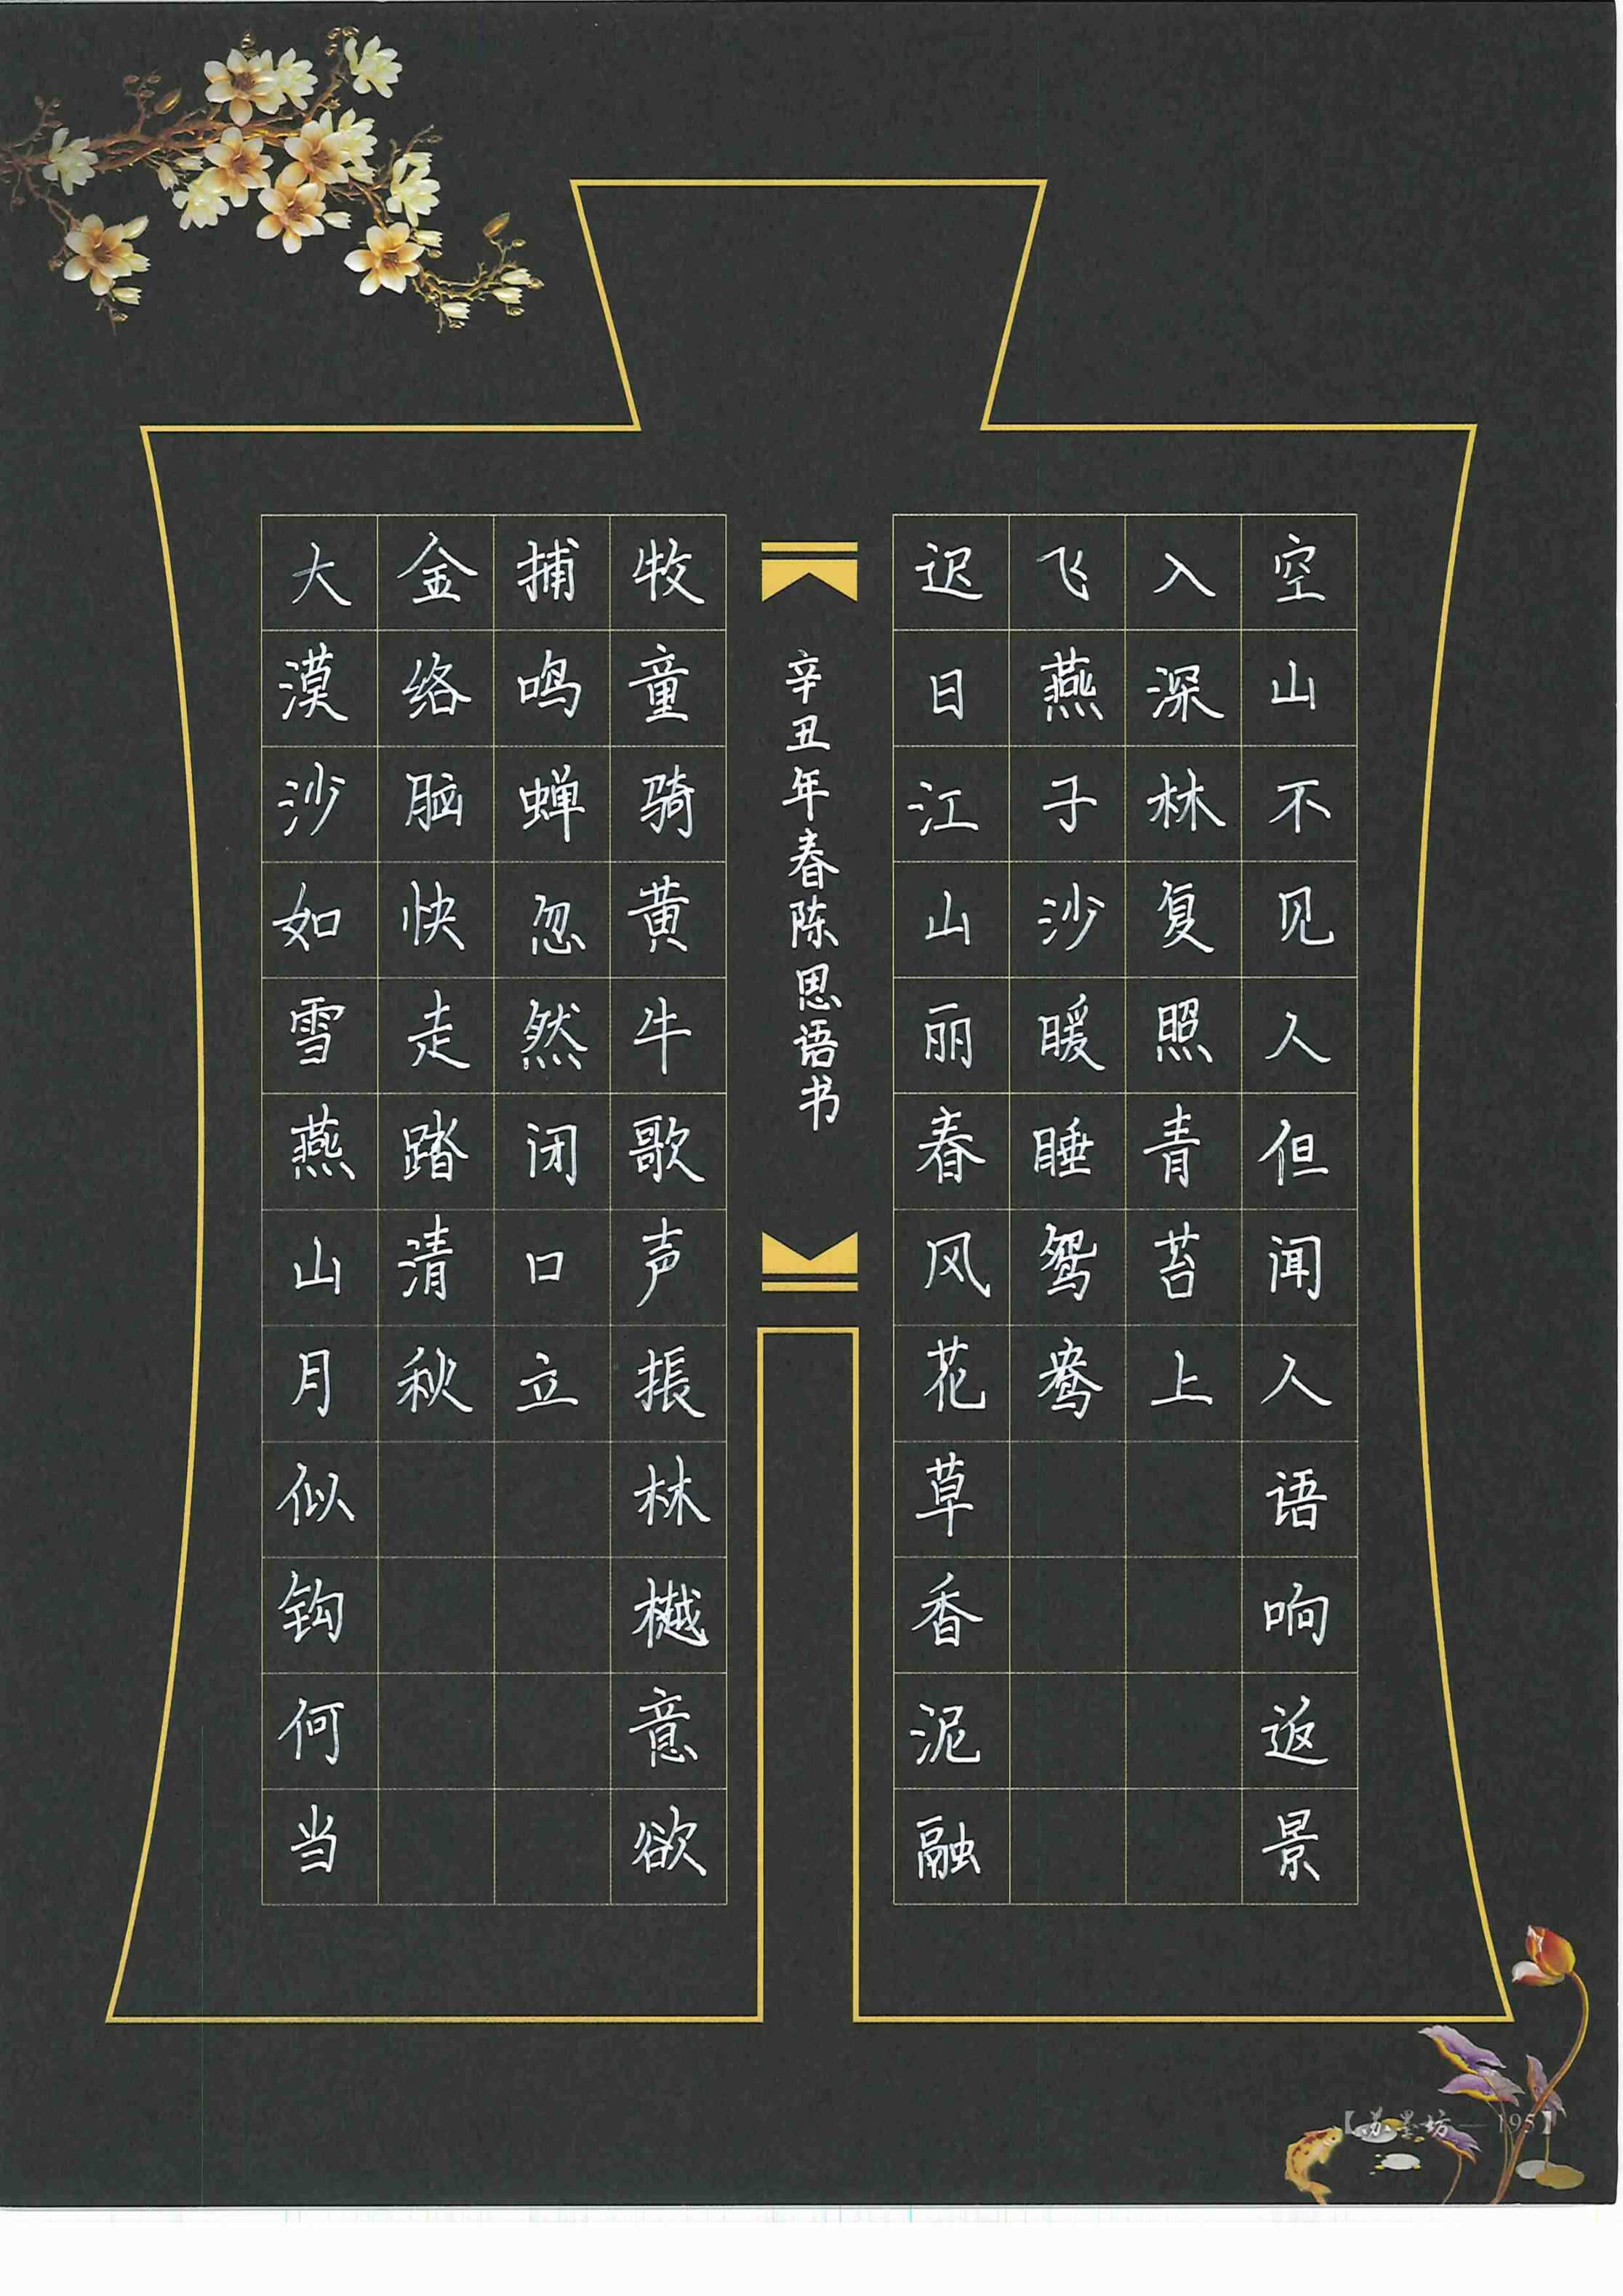 空山不见人但闻人语响返景
入深林复照青苔上
飞燕子沙暖睡鸳鸯
迟日江山丽春风花草香泥融
辛丑年春陈思语书
牧童骑黄牛歌声振林樾意欲
捕鸣蝉忽然闭口立
金络脑快走踏清秋
大漠沙如雪燕山月似钩何当
【苏墨坊—195】